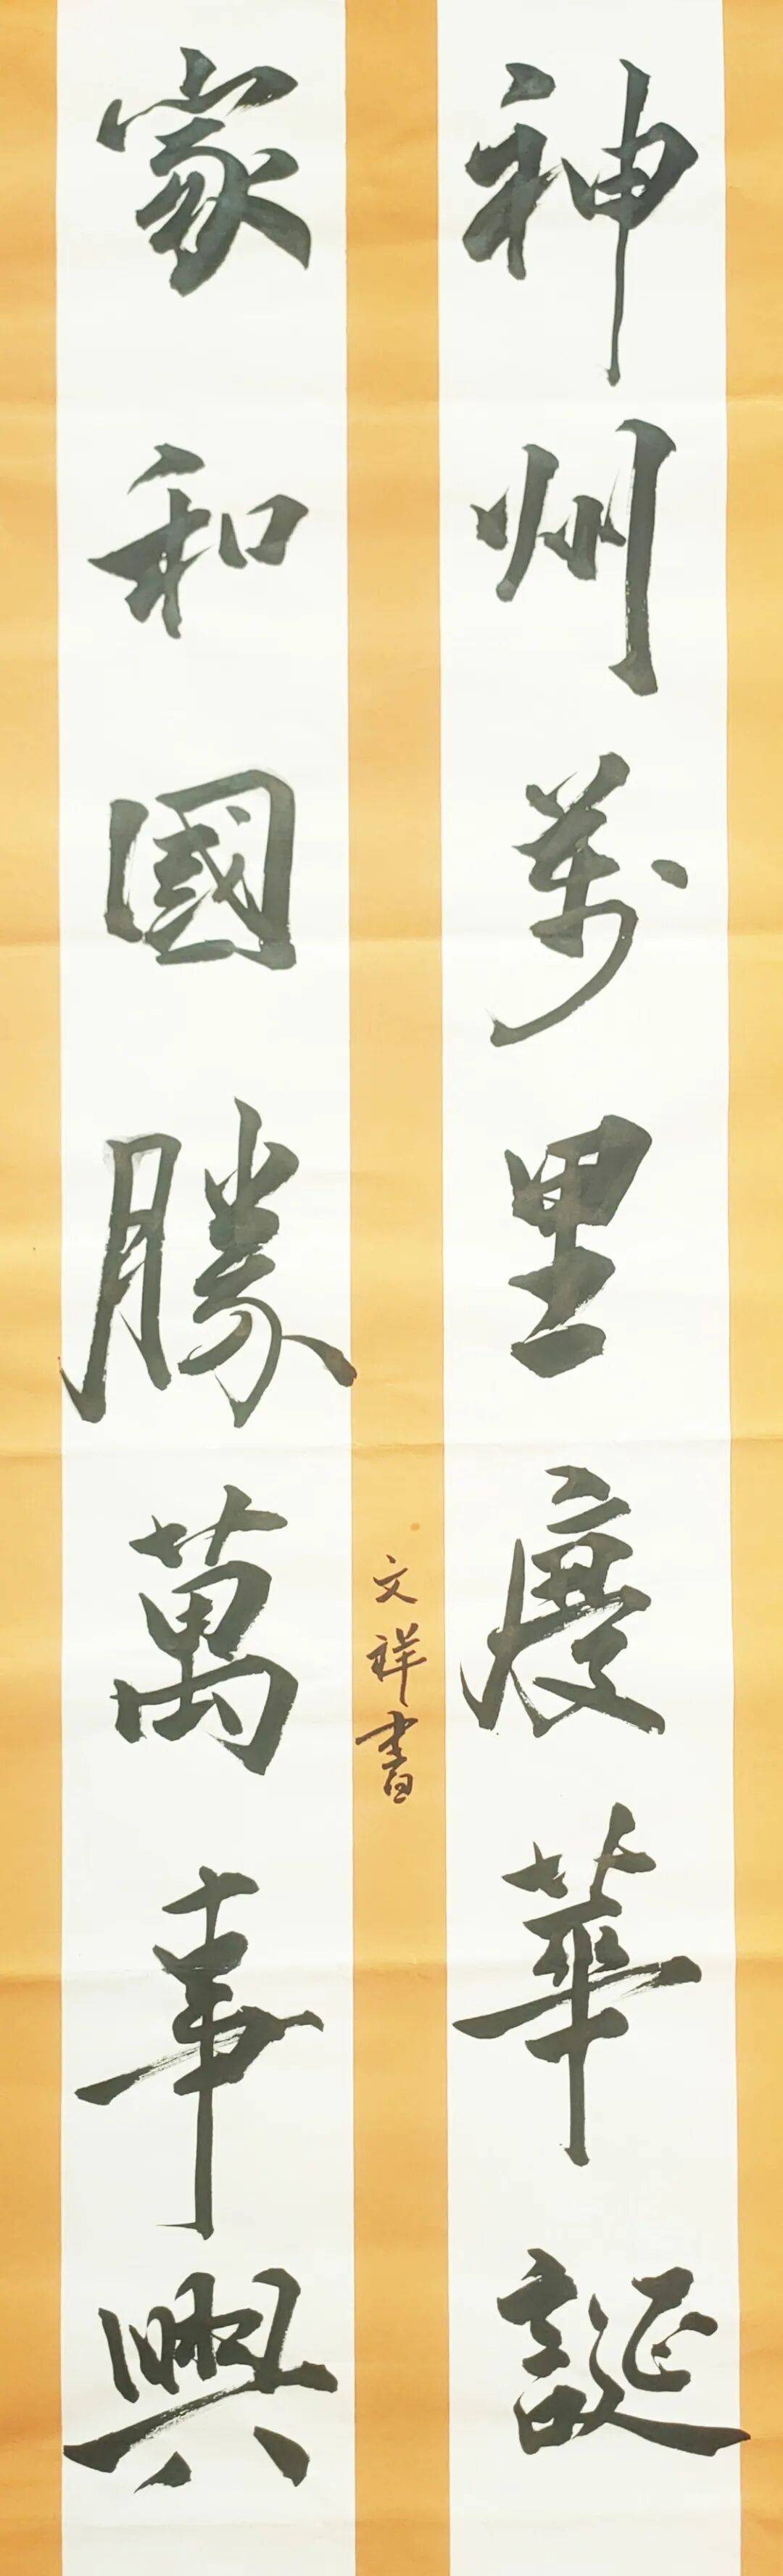 神州萬里度華誕
家和國勝萬事興
文祥書